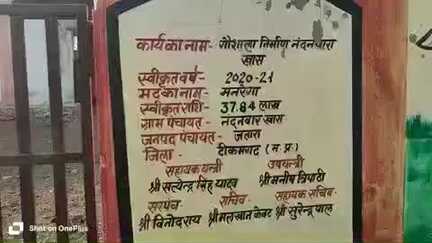 कार्य का नाम- गौशाला निर्माण नंदनवारा
खास
स्वीकृत वर्ष- 2020-21
मद का नाम- मनरेगा
स्वीकृत राशि- 37.84 लाख
ग्राम पंचायत- नंदनवारा खास
जनपद पंचायत- जतारा
जिला - टीकमगढ़ (म.प्र.)
सहायक यंत्री उपयंत्री
श्री सत्येन्द्र सिंह यादव श्री मनीष त्रिपाठी
सरपंच सचिव सहायक सचिव
श्री विनोद राय श्री मलखान केवट श्री सुरेन्द्र पाल
Shot on OnePlus